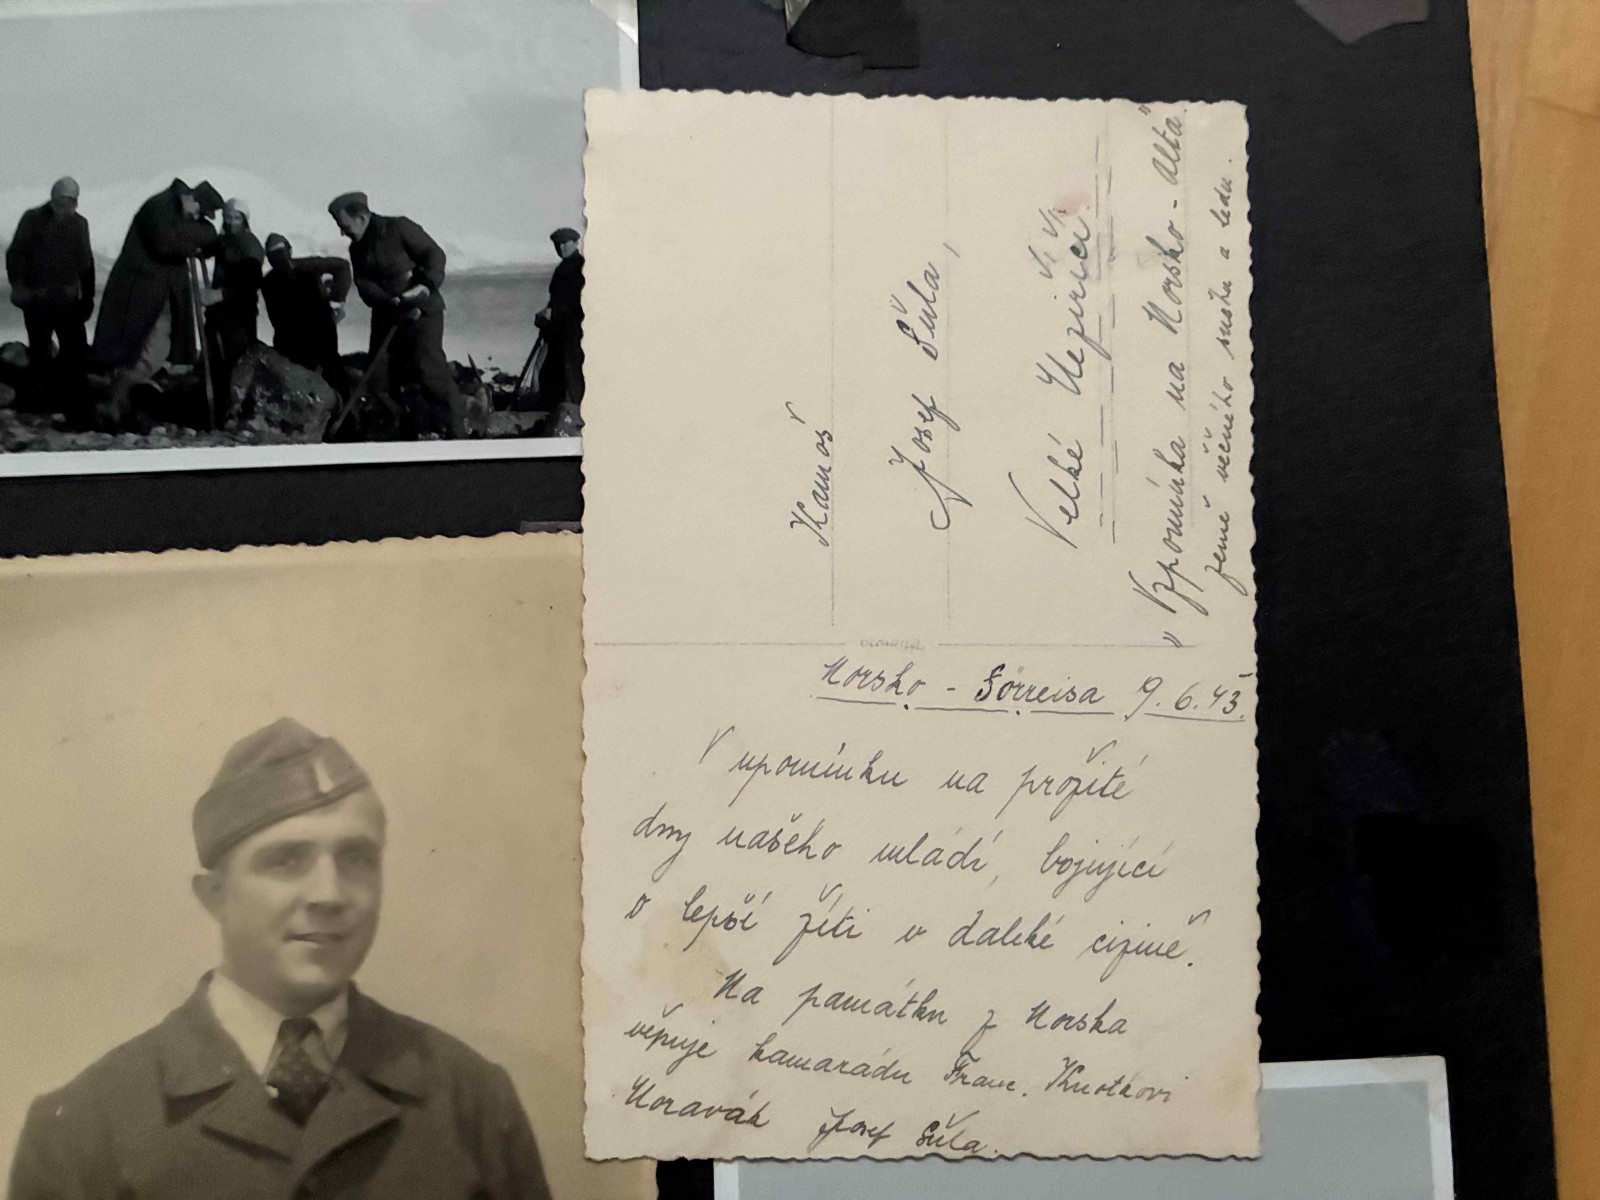 Norsko - Sörreisa 9.6.43.
V upomínku na prožité
dny našého mládí, bojující
o lepší žití v daleké cizině.
Na památku z Norska
věnuje kamarádu Franc. Knotkovi
Moravák Josef Šůla.
Josef Šůla,
Velké Meziříčí.
"Vzpomínka na Norsko - Alta"
zemi věčného sněhu a ledu.